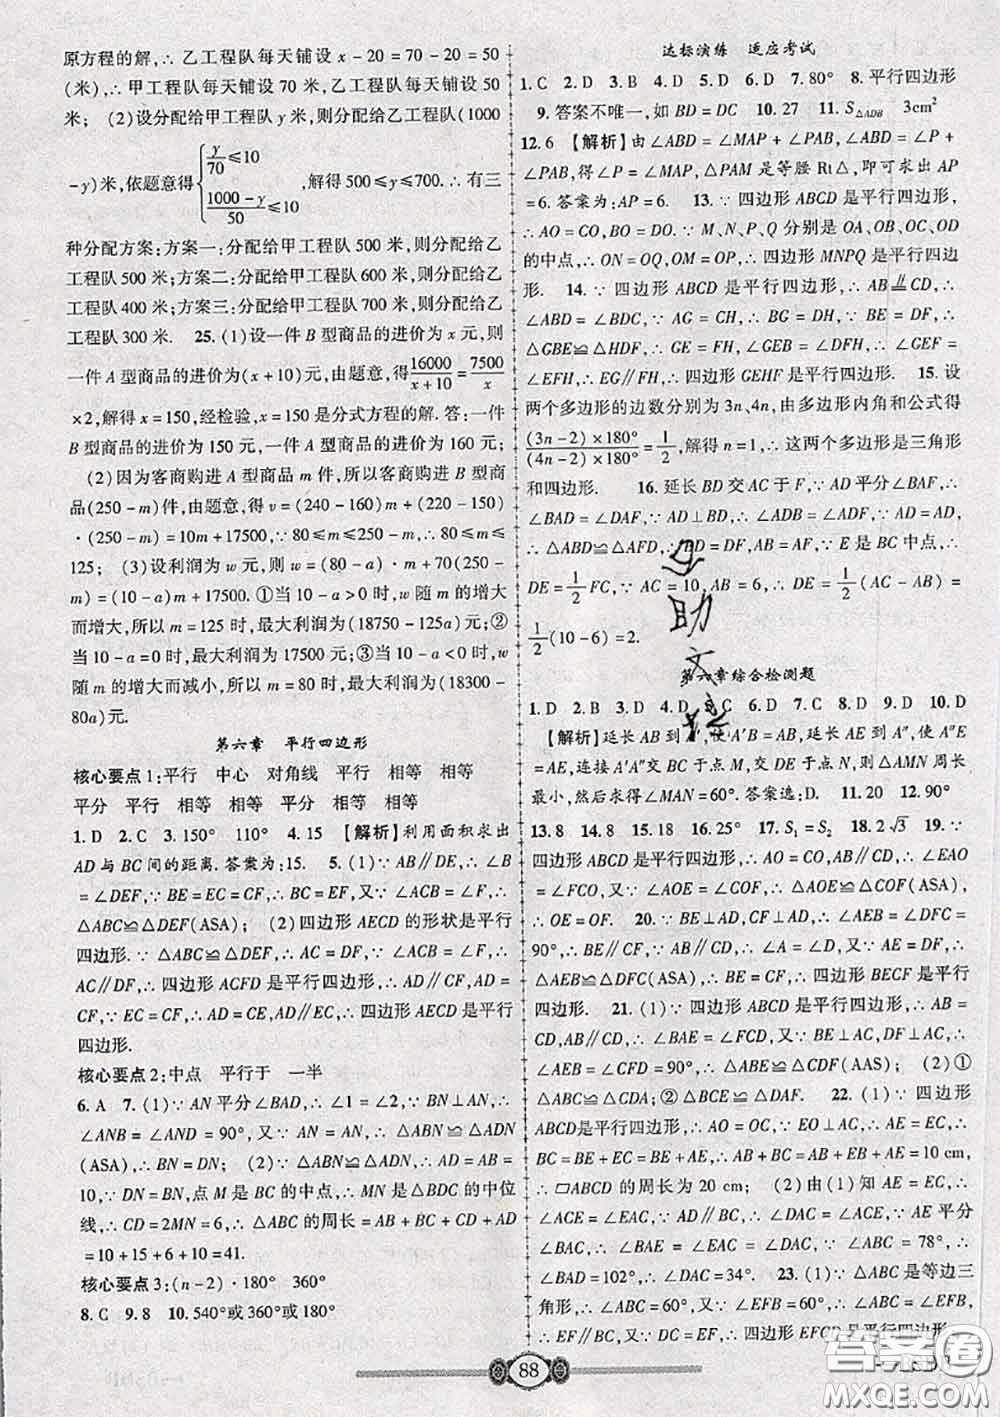 原方程的解,∴乙工程队每天铺设 x-20=70-20=50
(米),∴甲工程队每天铺设 70 米,乙工程队每天铺设 50
米; (2)设分配给甲工程队 y 米,则分配给乙工程队(1000
-y)米,依题意得{y/70≤10, (1000-y)/50≤10, 解得 500≤y≤700.∴有三
种分配方案:方案一:分配给甲工程队 500 米,则分配给乙
工程队 500 米;方案二:分配给甲工程队 600 米,则分配给
乙工程队 400 米;方案三:分配给甲工程队 700 米,则分配给乙
工程队 300 米. 25. (1)设一件 B 型商品的进价为 x 元,则
一件 A 型商品的进价为(x+10)元,由题意,得16000/(x+10)=7500/x
×2,解得 x=150,经检验,x=150 是分式方程的解.答:一件
B 型商品的进价为 150 元,一件 A 型商品的进价为 160 元;
(2)因为客商购进 A 型商品 m 件,所以客商购进 B 型商品
(250-m)件,由题意,得 v=(240-160)m+(220-150)
·(250-m)=10m+17500,∵80≤m≤250-m,∴80≤m≤
125; (3)设利润为 w 元,则 w=(80-a)m+70(250-
m)=(10-a)m+17500.①当 10-a>0 时,w 随 m 的增大
而增大,所以 m=125 时,最大利润为(18750-125a)元;②
当 10-a=0 时,最大利润为 17500 元;③当 10-a<0 时,w
随 m 的增大而减小,所以 m=80 时,最大利润为(18300-
80a)元.
第六章 平行四边形
核心要点 1:平行 中心 对角线 平行 相等 相等
平分 平行 相等 相等 平分 相等
1. D 2. C 3. 150° 110° 4. 15 【解析】利用面积求出
AD 与 BC 间的距离.答案为:15. 5. (1)∵AB∥DE,∴∠B
=∠DEF,∵BE=EC=CF,∴BC=EF,又∵∠ACB=∠F,∴
△ABC≌△DEF(ASA); (2)四边形 AECD 的形状是平行
四边形.∵△ABC≌△DEF,∴AC=DF,∵∠ACB=∠F,∴
AC∥DF,∴四边形 ACFD 是平行四边形,∴AD∥CF,AD=
CF,∵EC=CF,∴AD=CE,AD∥CE,∴四边形 AECD 是平行
四边形.
核心要点 2:中点 平行于 一半
6. A 7. (1)∵AN 平分∠BAD,∴∠1=∠2,∵BN⊥AN,∴
∠ANB=∠AND=90°,又∵AN=AN,∴△ABN≌△ADN
(ASA),∴BN=DN; (2)∵△ABN≌△ADN,∴AD=AB=
10,∵DN=BN,点 M 是 BC 的中点,∴MN 是△BDC 的中位
线,∴CD=2MN=6,∴△ABC 的周长=AB+BC+CD+AD
=10+15+6+10=41.
核心要点 3:(n-2)·180° 360°
8. C 9. 8 10. 540°或 360°或 180°
达标演练 适应考试
1. C 2. D 3. B 4. D 5. D 6. D 7. 80° 8. 平行四边形
9. 答案不唯一,如 BD=DC 10. 27 11. S△ADB 3cm²
12. 6 【解析】由∠ABD=∠MAP+∠PAB,∠ABD=∠P+
∠PAB,∴∠P=∠MAP,△PAM 是等腰 Rt△,即可求出 AP
=6.答案为:AP=6. 13. ∵四边形 ABCD 是平行四边形,
∴AO=CO,BO=DO.∵M、N、P、Q 分别是 OA、OB、OC、OD
的中点,∴ON=OQ,OM=OP,∴四边形 MNPQ 是平行四边
形. 14. ∵四边形 ABCD 是平行四边形,∴AB∥CD,∴
∠ABD=∠BDC,∵AG=CH,∴BG=DH,∵BE=DF,∴
△GBE≌△HDF,∴GE=FH,∠GEB=∠DFH,∴∠GEF=
∠EFH,∴EG∥FH,∴四边形 GEHF 是平行四边形. 15. 设
两个多边形的边数分别为 3n、4n,由多边形内角和公式得
(3n-2)×180°/(4n-2)×180°=1/2,解得 n=1,∴这两个多边形是三角形
和四边形. 16. 延长 BD 交 AC 于 F,∵AD 平分∠BAF,∴
∠BAD=∠DAF,∵AD⊥BD,∴∠ADB=∠ADF,∵AD=AD,
∴△ABD≌△AFD,∴BD=DF,AB=AF,∵E 是 BC 中点,∴
DE=1/2FC,∵AC=10,AB=6,∴DE=1/2(AC-AB)=
1/2(10-6)=2.
第六章综合检测题
1. D 2. B 3. D 4. D 5. C 6. D 7. C 8. D 9. D 10. D
【解析】延长 AB 到 A′,使 A′B=AB,延长 AE 到 A″,使 A″E
=AE,连接 A′A″交 BC 于点 M,交 DE 于点 N,则△AMN 周长
最小,然后求得∠MAN=60°.答案选:D. 11. 20 12. 90°
13. 8 14. 8 15. 18 16. 25° 17. S₁=S₂ 18. 2√3 19. ∵
四边形 ABCD 是平行四边形,∴AO=CO,AB∥CD,∴∠EAO
=∠FCO,又∵∠AOE=∠COF,∴△AOE≌△COF(ASA),
∴OE=OF. 20. ∵BE⊥AD,CF⊥AD,∴∠AEB=∠DFC=
90°,∴BE∥CF,∵AB∥CD,∴∠A=∠D,又∵AE=DF,∴
△AEB≌△DFC(ASA),∴BE=CF,∴四边形 BECF 是平行
四边形. 21. (1)∵四边形 ABCD 是平行四边形,∴AB=
CD,AB∥CD,∴∠BAE=∠FCD,又∵BE⊥AC,DF⊥AC,∴
∠AEB=∠CFD=90°,∴△ABE≌△CDF(AAS); (2)①
△ABC≌△CDA,②△BCE≌△DAF. 22. (1)∵四边形
ABCD是平行四边形,∴AO=OC,∵EO⊥AC,∴AE=EC,∴
BC=BE+EC=BE+AE,∴AB+BC=AB+EB+AE=10 cm,
∴▱ABCD 的周长为 20 cm; (2)由(1)知 AE=EC,∴
∠ACE=∠EAC,∵AD∥BC,∴∠DAC=∠ACE,∵AE 平分
∠BAC,∴∠BAE=∠EAC=∠DAC,∵∠ABC=78°,∴
∠BAD=102°,∴∠DAC=34°. 23. (1)∵△ABC 是等边三
角形,∴∠ABC=60°,又∵∠EFB=60°,∴∠ABC=∠EFB,
∴EF∥BC,又∵DC=EF,∴四边形 EFCD 是平行四边形.
88
答案圈
MXQE.COM